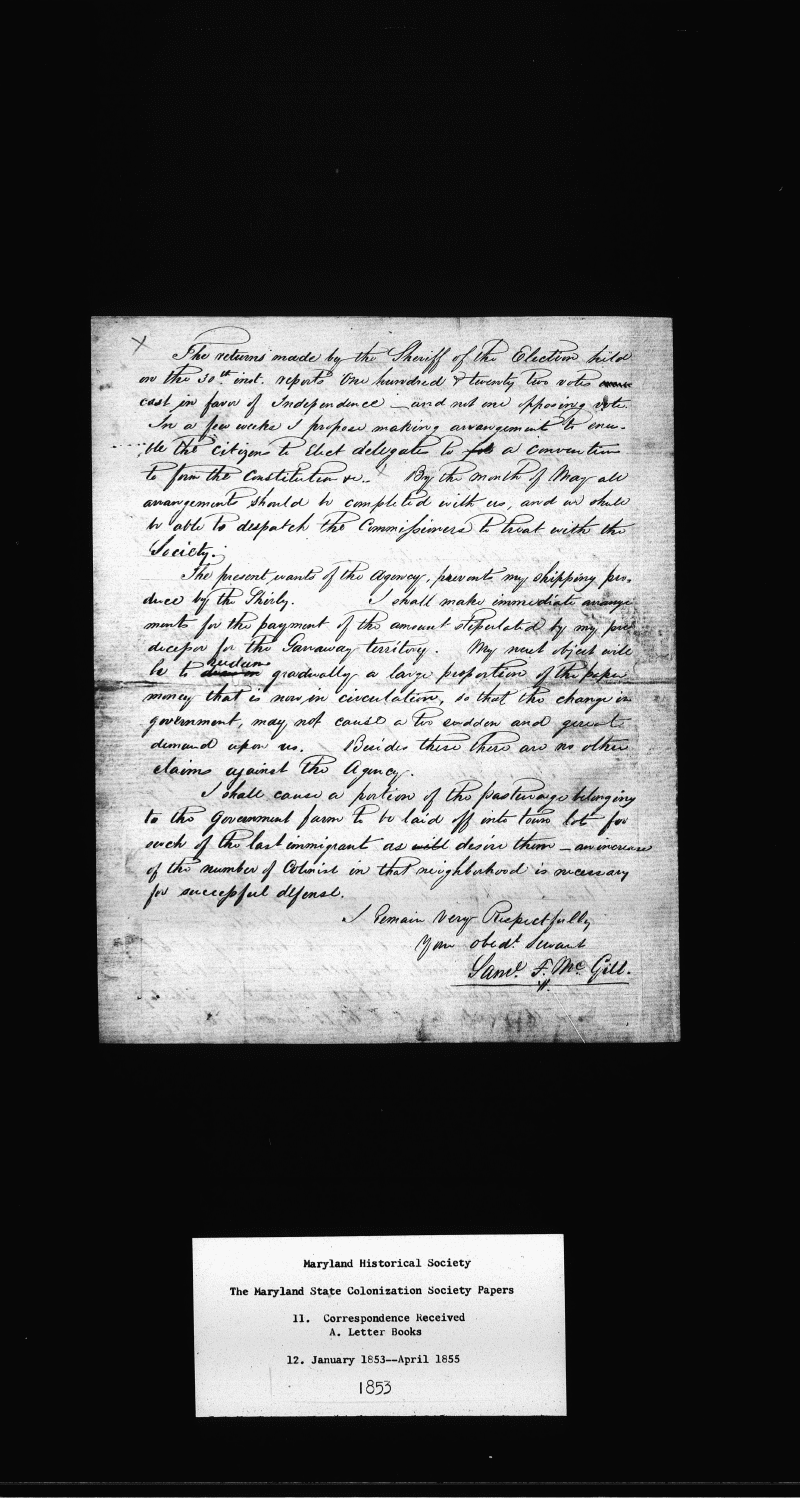 The returns made by the Sheriff of the Election held
on the 30th inst. reports One hundred & twenty two votes
cast in favor of Independence — and not one opposing vote.
In a few weeks I propose making arrangement to ena-
ble the citizens to Elect delegates to a convention
to form the Constitution &c. By the month of May all
arrangements should be completed with us, and we shall
be able to despatch the Commissioners to treat with the
Society.
The present wants of the Agency, prevents my shipping pro-
duce by the Shirly. I shall make immediate arrange
ments for the payment of the amount stepulated by my pre
decepor for the Garraway territory. My next object will
be to redeem gradually a large proportion of the paper
money that is now in circulation, so that the change in
government, may not cause a too sudden and great
demand upon us. Besides these there are no other
claims against the Agency.
I shall cause a portion of the pasturage belonging
to the Government farm to be laid off into town lot for
such of the last immigrant as will desire them — an increase
of the number of Colonist in that neighborhood is necessary
for successful defense.
I Remain Very Respectfully
Your obedt. Servant
Saml. F. Mc. Gill.
Maryland Historical Society
The Maryland State Colonization Society Papers
11. Correspondence Received
A. Letter Books
12. January 1853--April 1855
1853